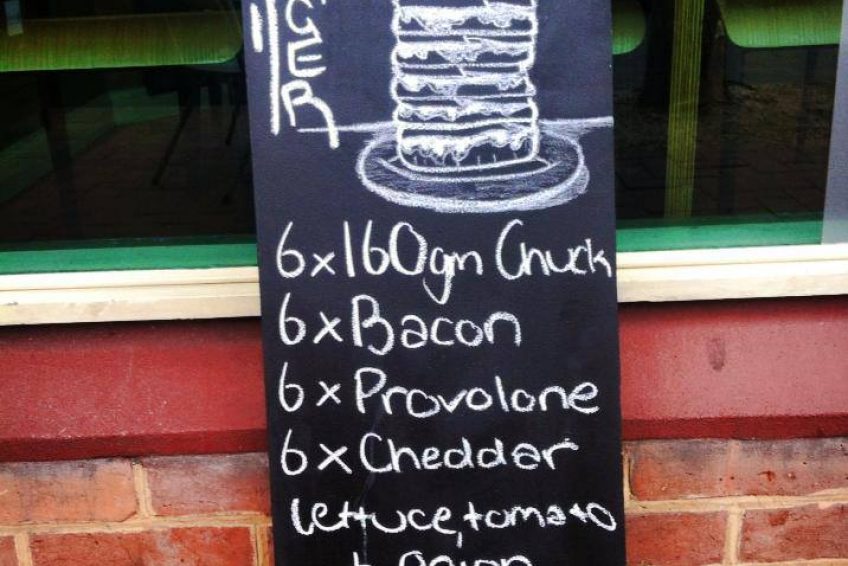 GER
6x160gm Chuck
6xBacon
6xProvolone
6xCheddar
lettuce, tomato
& onion